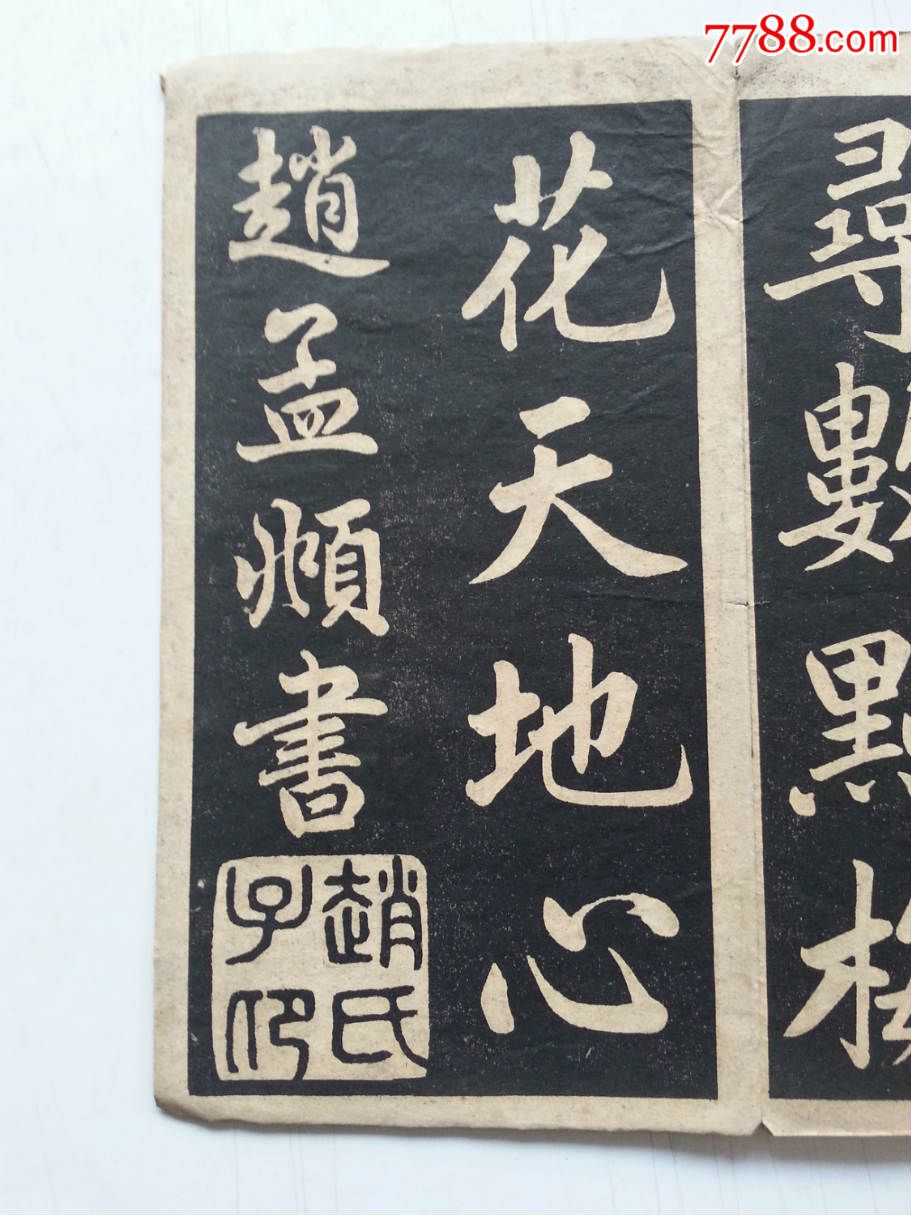 7788.com
尋數點梅
花天地心
趙孟頫書
趙氏子卬